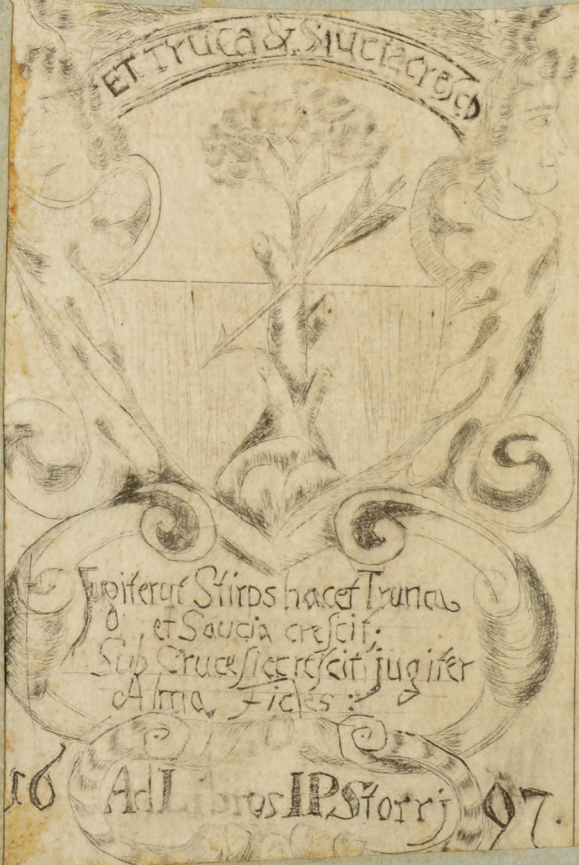 ET Truca & Siucia cresco
Jugiter ut Stirps hæc et Trunca
et Saucia crescit;
Sub Cruce sic crescit jugiter
Alma Fides:
16 Ad Libros IP Storrj 97.